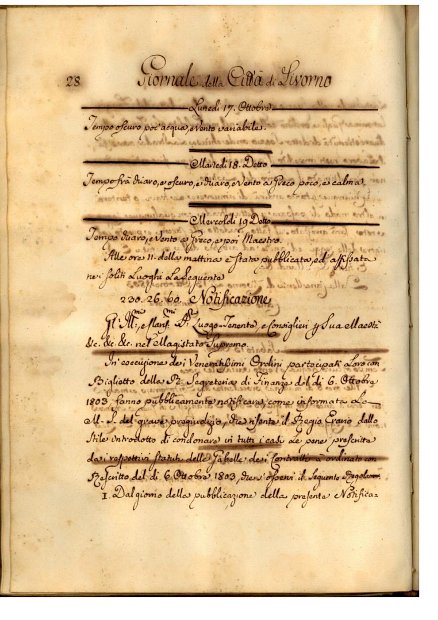 28 Giornale della Città di Livorno
Lunedì 17. Ottobre
Tempo oscuro poc'acqua, e vento variabile.
Martedì 18. Detto
Tempo frà chiaro, e oscuro, e chiaro, e vento a Greco poco, e calma,
Mercoldì 19 Detto
Tempo chiaro, e Vento a Greco, e poi Maestro.
Alle ore 11. della mattina e Stata pubblicata, ed affissata
ne soliti Luoghi La Seguente
220. 26. 60. Notificazione
Gl' Ill.mi, e Luogo-Tenente, e Consiglieri Sua Maestà
&c. &c. &c. nel Magistrato Supremo.
In esecuzione dei Veneratissimi Ordini partecipati Loro con
Biglietto della R. Segreteria di Finanze del dì 6. Ottobre
1803 fanno pubblicamente notificare come informata La
M. S. del grave pregiudizio, che risente il Regio Erario dallo
Stile introdotto di condonare in tutti i casi Le pene prescritte
dai respettivi Statuti delle Gabelle dei Contratti à ordinato con
Rescritto del dì 6 Ottobre 1803, che si osservi il Seguente
1. Dal giorno della pubblicazione della presente Notifica=